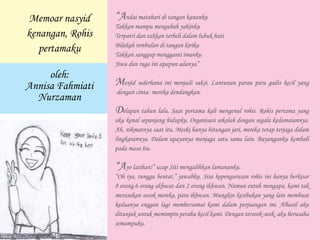 Memoar nasyid
kenangan, Rohis
pertamaku
oleh:
Annisa Fahmiati
Nurzaman
keep your Smile !! :)
"Andai matahari di tangan kananku
Takkan mampu mengubah yakinku
Terpatri dan takkan terbeli dalam lubuk hati
Bilakah rembulan di tangan kiriku
Takkan sanggup mengganti imanku
Jiwa dan raga ini apapun adanya"
Mesjid sederhana ini menjadi saksi. Lantunan parau para gadis kecil yang
-dengan cinta- mereka dendangkan.
Delapan tahun lalu. Saat pertama kali mengenal rohis. Rohis pertama yang
aku kenal sepanjang hidupku. Organisasi sekolah dengan segala kedamaiannya.
Ah, nikmatnya saat itu. Meski hanya hitungan jari, mereka tetap terjaga dalam
lingkarannya. Dalam upayanya menjaga satu sama lain. Bayanganku kembali
pada masa itu.
"Ayo latihan!" ucap Siti mengalihkan lamunanku.
"Oh iya, tunggu bentar," jawabku. Sisa kepengurusan rohis ini hanya berkisar
8 orang;6 orang akhwat dan 2 orang ikhwan. Namun entah mengapa, kami tak
merasakan sosok mereka, para ikhwan. Mungkin kesibukan yang lain membuat
keduanya enggan lagi membersamai kami dalam perjuangan ini. Alhasil aku
ditunjuk untuk memimpin perahu kecil kami. Dengan terseok-seok, aku berusaha
semampuku.